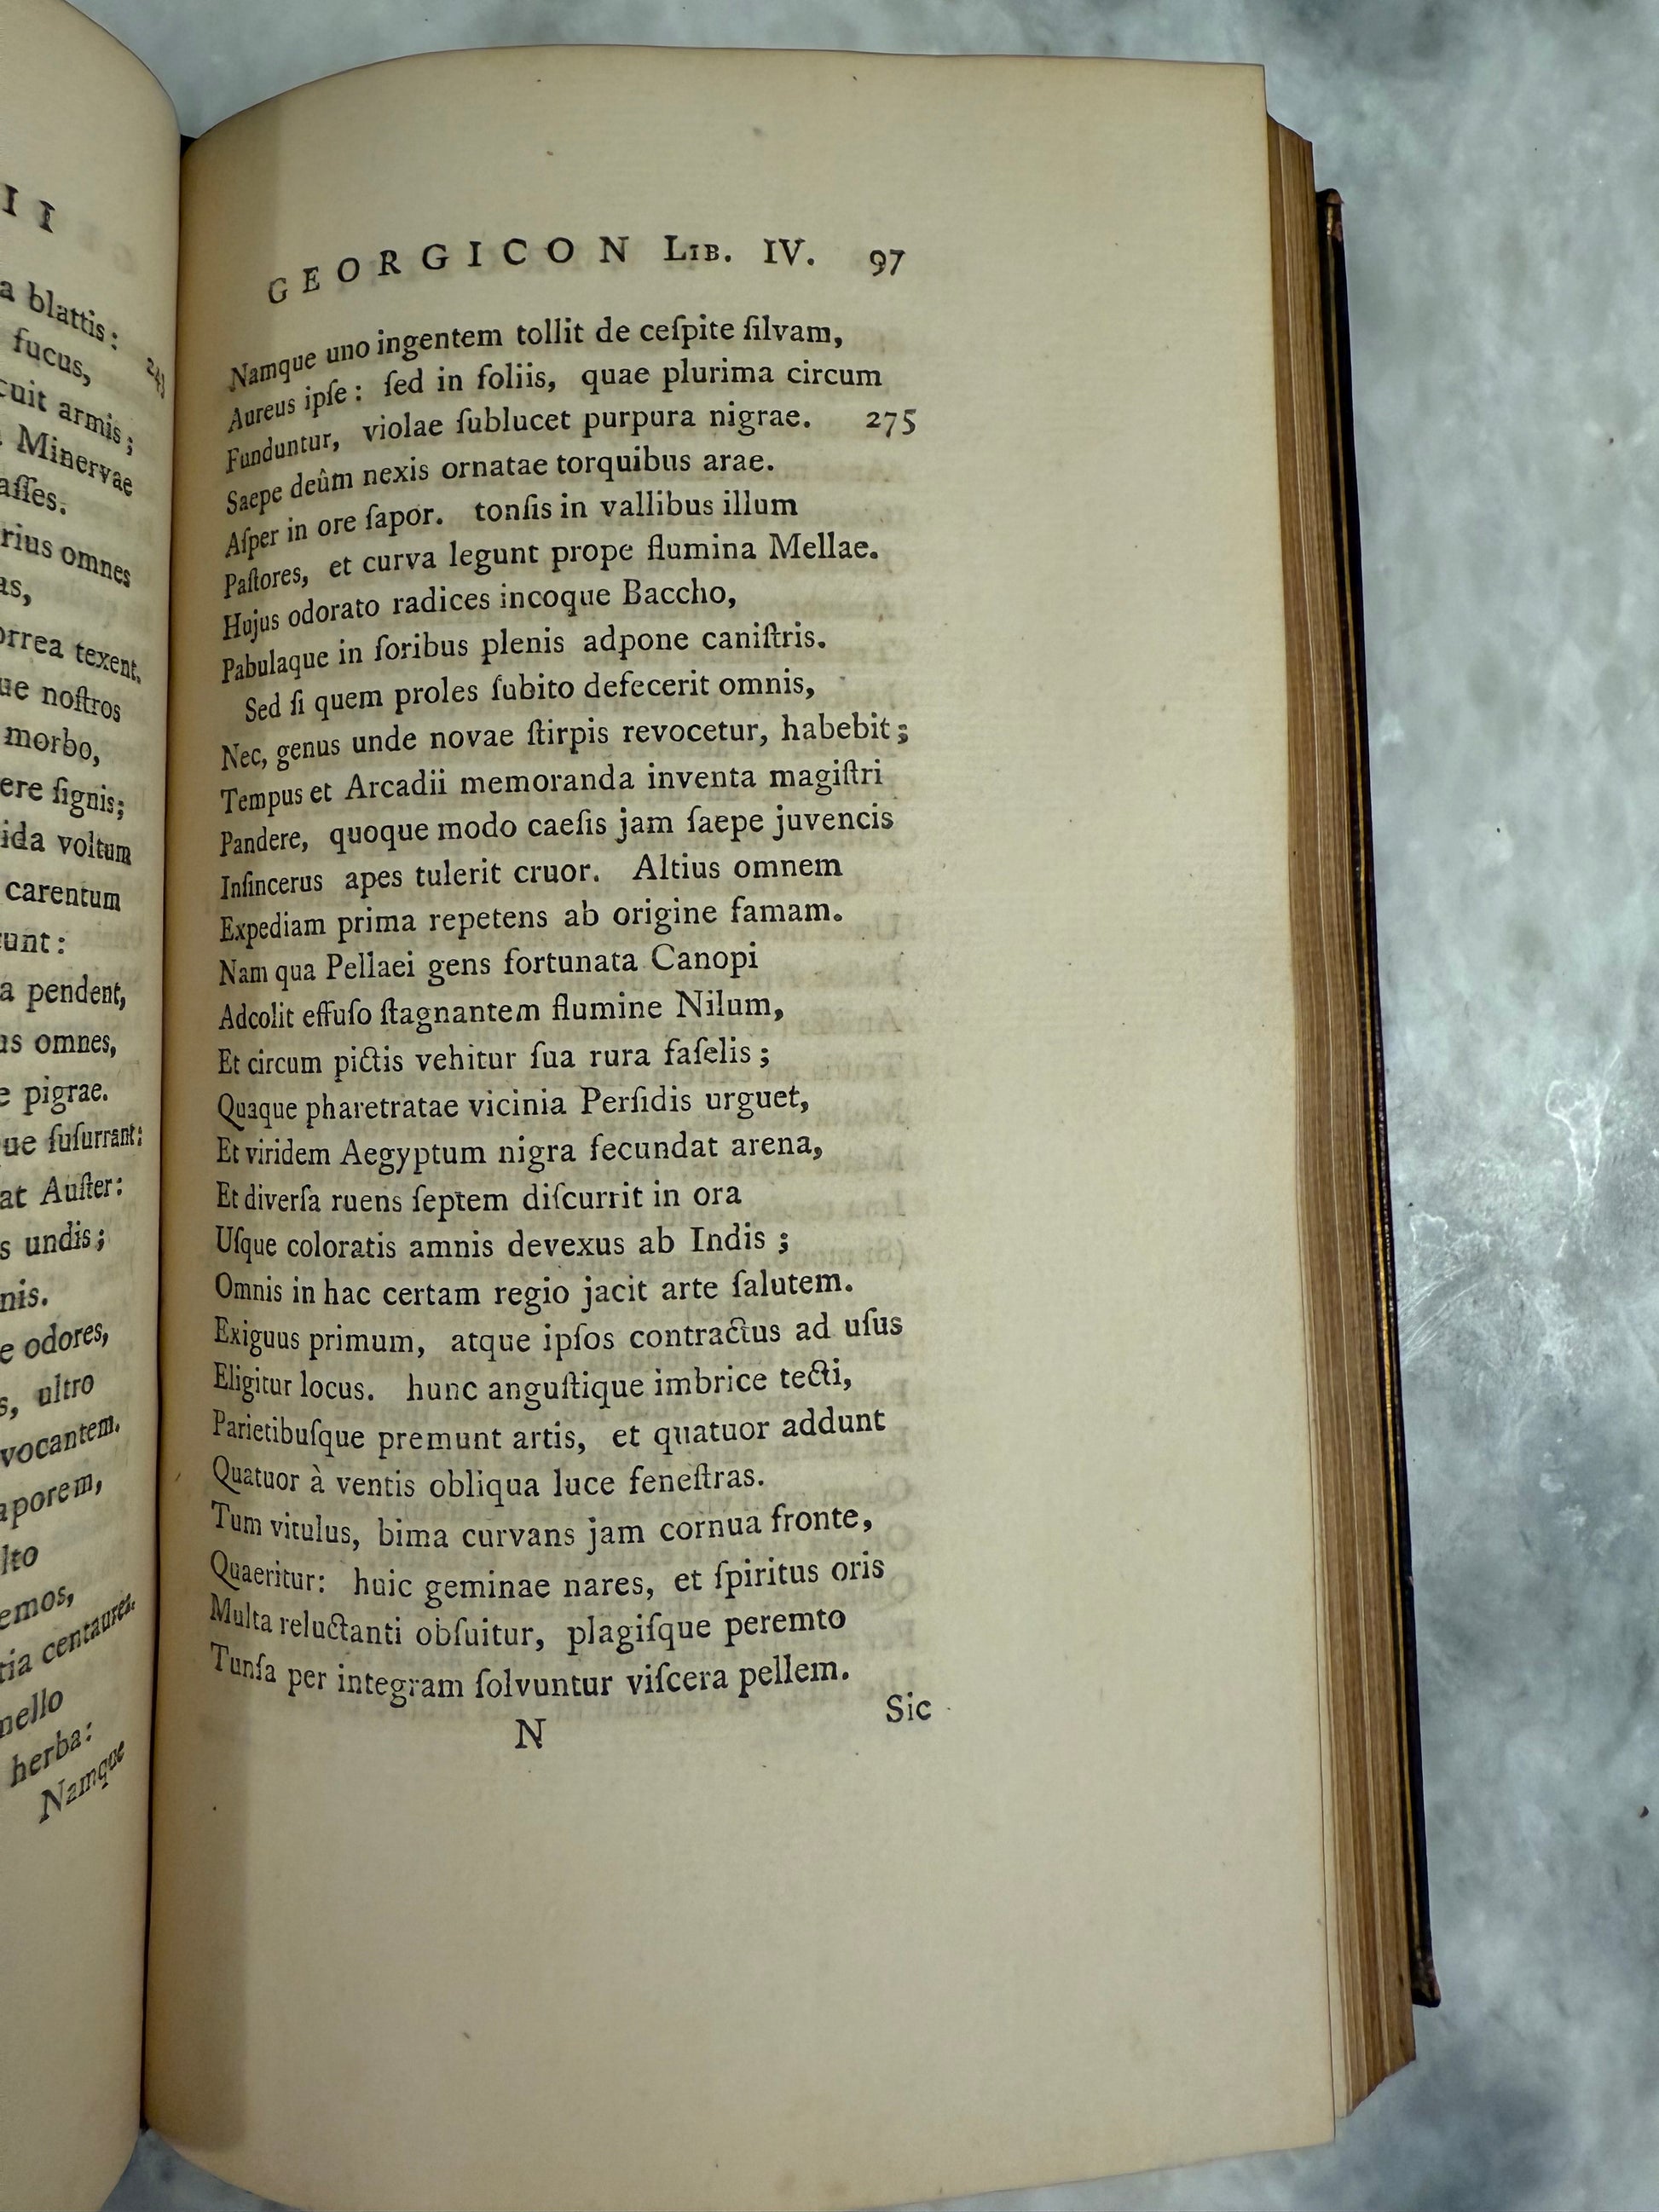 I I
a blattis:
fucus,
cuit armis;
Minervae
aſſes.
rius omnes
as,
orrea texent.
ue noſtros
morbo,
ere ſignis;
ida voltum
carentum
unt:
a pendent,
us omnes,
e pigrae.
ue ſuſurrant:
at Auſter:
s undis;
nis.
e odores,
s, ultro
vocantem.
aporem,
lto
emos,
tia centaurea.
mello
herba:
Namque
GEORGICON LIB. IV. 97
Namque uno ingentem tollit de ceſpite ſilvam,
Aureus ipſe: ſed in foliis, quae plurima circum
Funduntur, violae ſublucet purpura nigrae. 275
Saepe deûm nexis ornatae torquibus arae.
Aſper in ore ſapor. tonſis in vallibus illum
Paſtores, et curva legunt prope flumina Mellae.
Hujus odorato radices incoque Baccho,
Pabulaque in foribus plenis adpone caniſtris.
Sed ſi quem proles ſubito defecerit omnis,
Nec, genus unde novae ſtirpis revocetur, habebit;
Tempus et Arcadii memoranda inventa magiſtri
Pandere, quoque modo caeſis jam ſaepe juvencis
Inſincerus apes tulerit cruor. Altius omnem
Expediam prima repetens ab origine famam.
Nam qua Pellaei gens fortunata Canopi
Adcolit effuſo ſtagnantem flumine Nilum,
Et circum pictis vehitur ſua rura faſelis;
Quaque pharetratae vicinia Perſidis urguet,
Et viridem Aegyptum nigra fecundat arena,
Et diverſa ruens ſeptem diſcurrit in ora
Uſque coloratis amnis devexus ab Indis;
Omnis in hac certam regio jacit arte ſalutem.
Exiguus primum, atque ipſos contractus ad uſus
Eligitur locus. hunc anguſtique imbrice tecti,
Parietibuſque premunt artis, et quatuor addunt
Quatuor à ventis obliqua luce feneſtras.
Tum vitulus, bima curvans jam cornua fronte,
Quaeritur: huic geminae nares, et ſpiritus oris
Multa reluctanti obſuitur, plagiſque peremto
Tunſa per integram ſolvuntur viſcera pellem.
N Sic